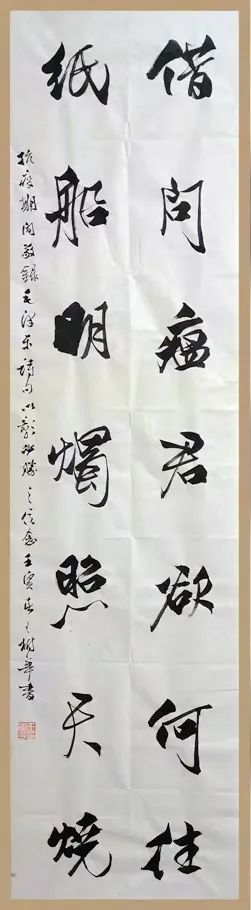 借问瘟君欲何往
纸船明烛照天烧
抗疫期间敬录毛泽东诗句以彰必胜之信念壬寅春之树年书